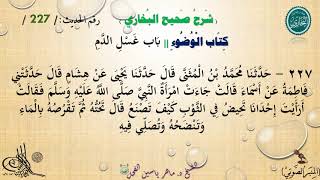 ( شرح صحيح البخاري ) رقم الحديث: / 227 /
كِتَاب الْوُضُوءِ || بَاب غَسْلِ الدَّمِ
٢٢٧ – حَدَّثَنَا مُحَمَّدُ بْنُ الْمُثَنَّى قَالَ حَدَّثَنَا يَحْيَى عَنْ هِشَامٍ قَالَ حَدَّثَتْنِي
فَاطِمَةُ عَنْ أَسْمَاءَ قَالَتْ جَاءَتْ امْرَأَةٌ النَّبِيَّ صَلَّى اللَّهُ عَلَيْهِ وَسَلَّمَ فَقَالَتْ
أَرَأَيْتَ إِحْدَانَا تَحِيضُ فِي الثَّوْبِ كَيْفَ تَصْنَعُ قَالَ تَحُتُّهُ ثُمَّ تَقْرُصُهُ بِالْمَاءِ
وَتَنْضَحُهُ وَتُصَلِّي فِيهِ
الشيخ د. ماهر ياسين الفحل